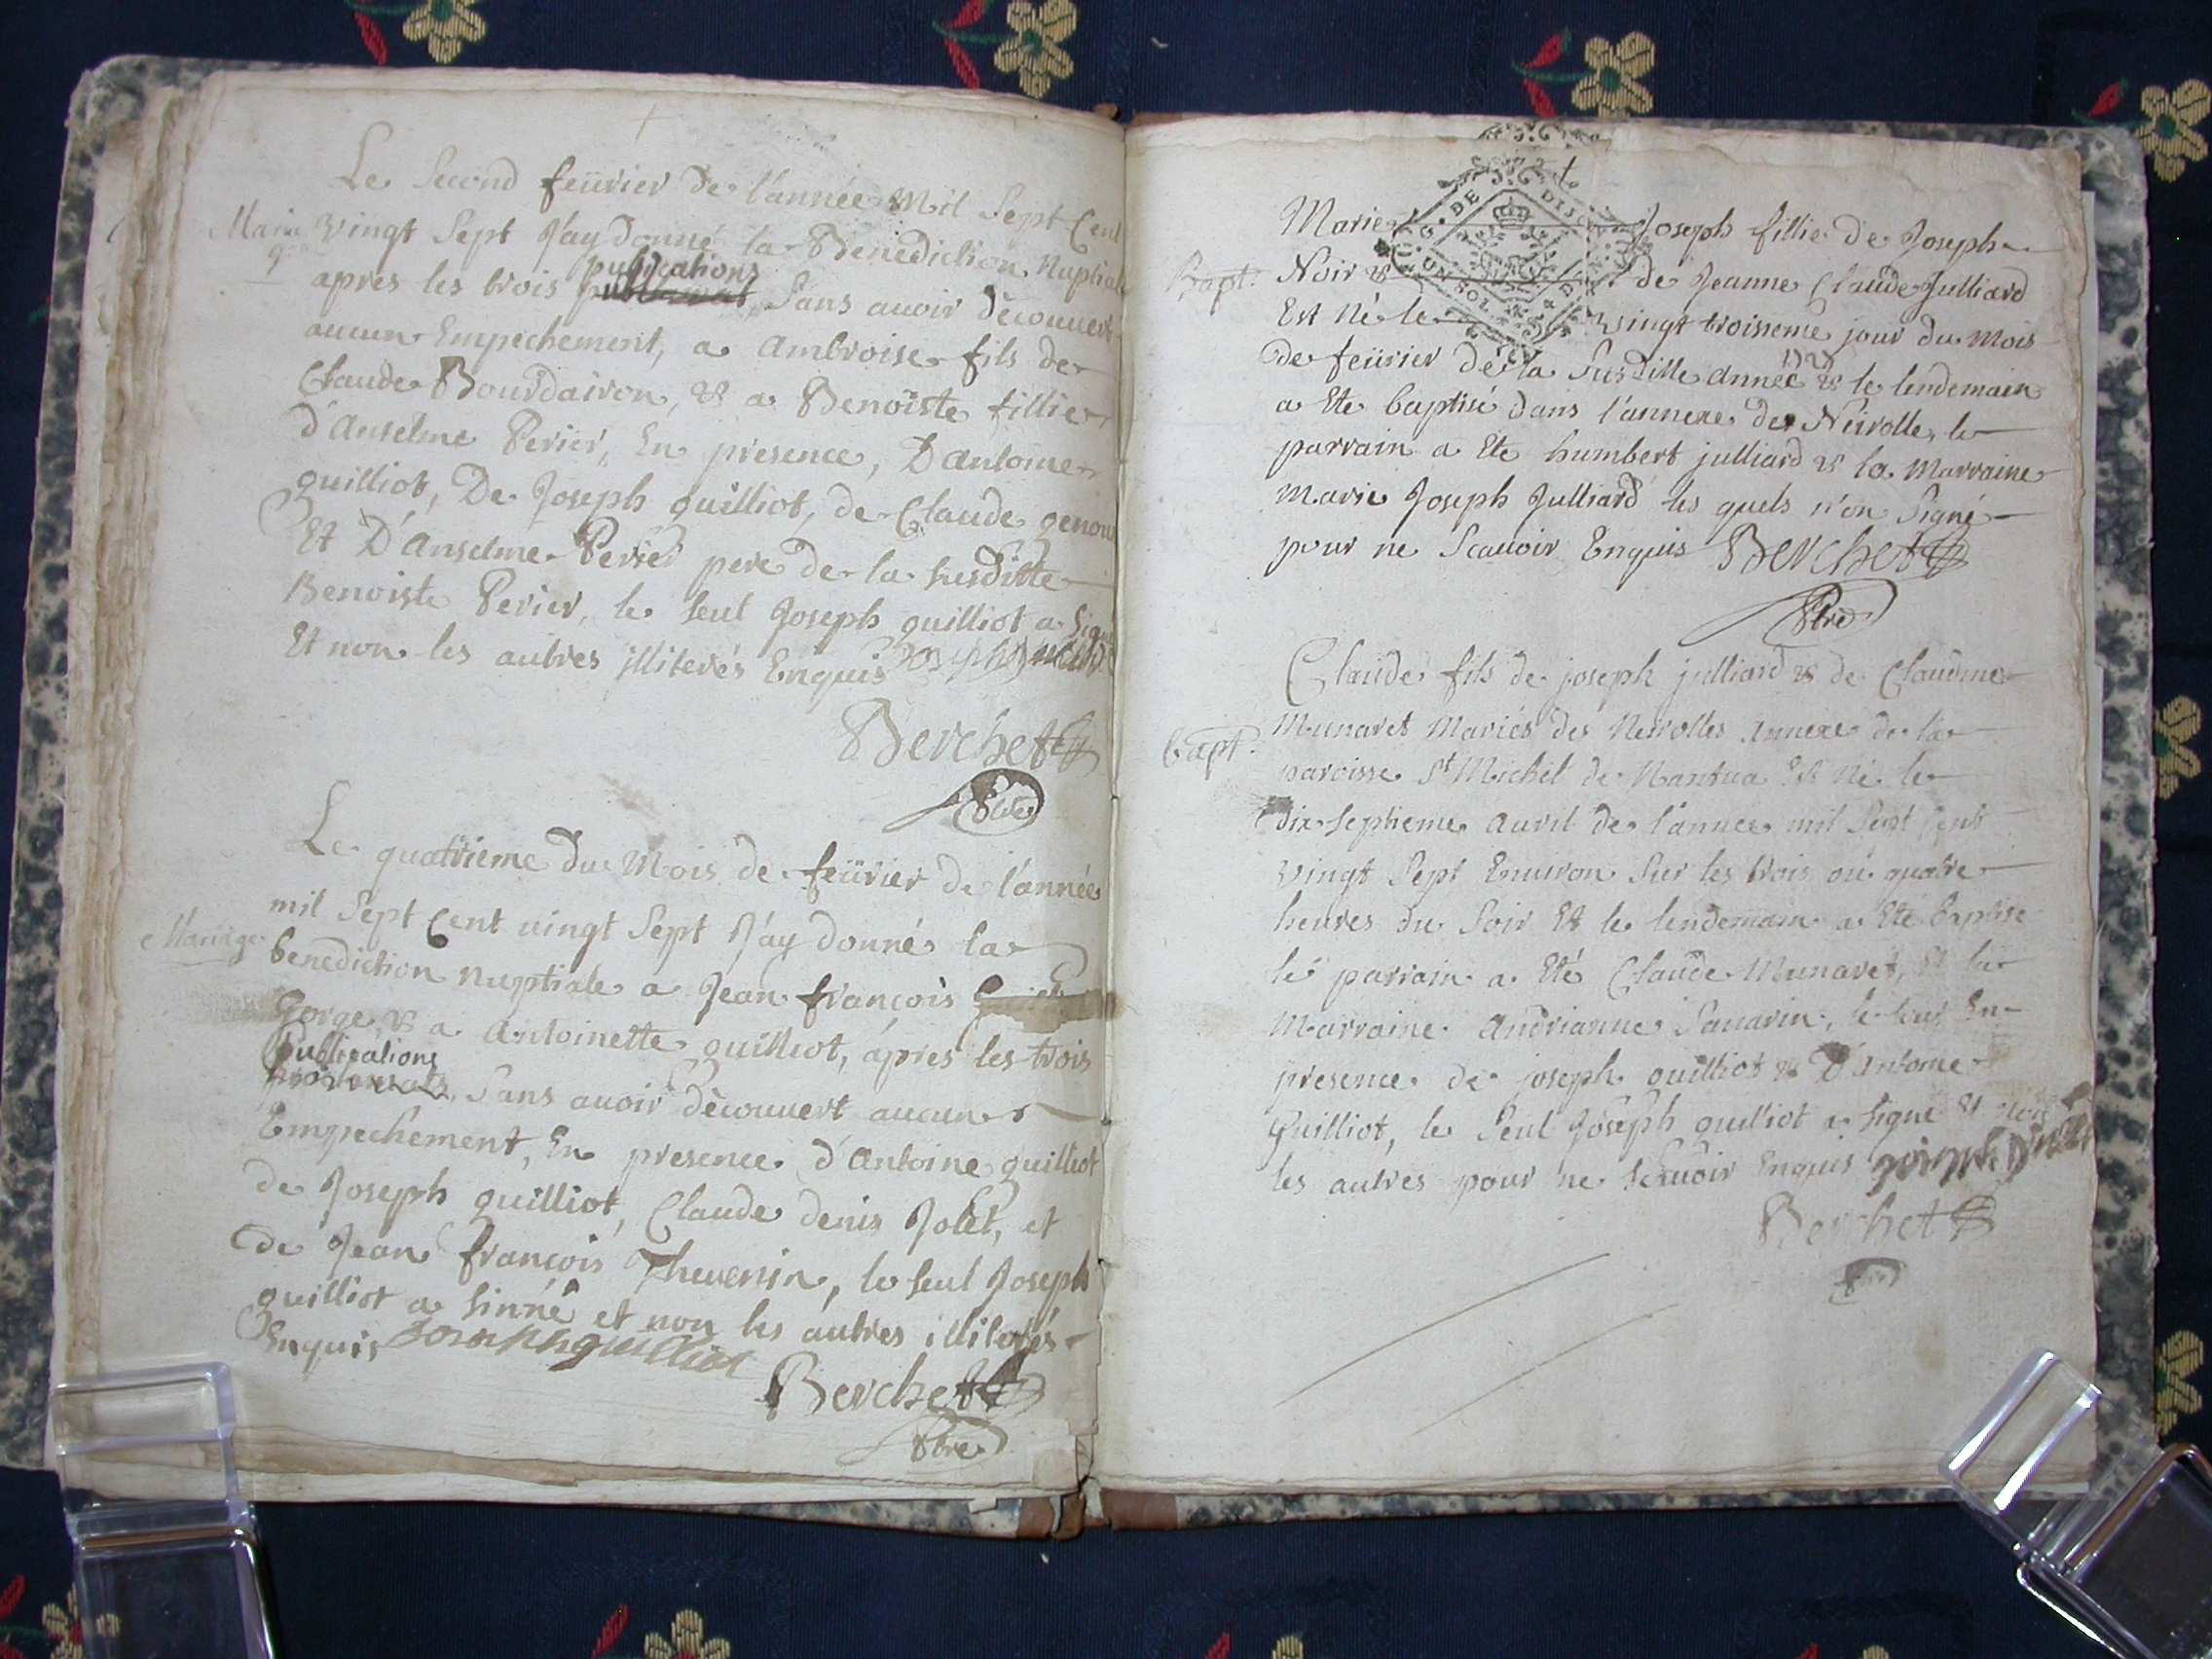 Le Second feürier de l'année Mil Sept Cent
Maria
ge
vingt Sept J'ay donné la Benediction Nuptiale
publications
apres les trois Sans auoir décounert
aucun Empechement, a Ambroise fils de
Claude Bourdairon, & a Benoiste fillie
d'Anselme Perier, En presence, D'antoine
guilliot, De Joseph guilliot, de Claude genou
Et D'Anselme Perier pere de la susditte
Benoiste Perier, le seul Joseph guilliot a signé
Et non les autres illiterés Enquis
Berchet
Ptre
Le quatrieme du Mois de feürier de l'année
mil Sept Cent vingt Sept J'ay donné la
Mariage
benediction nuptiale a Jean françois
Gorge, & a Antoinette guilliot, apres les trois
publications
Sans auoir découuert aucun
Empechement, En presence d'Antoine guilliot
de Joseph guilliot, Claude denis Jolet, et
de Jean françois Theuenin, le seul Joseph
guilliot a sinné et non les autres illiterés
Enquis Joseph guilliot
Berchet
Ptre
G. DE DIJON
UN SOL 4 D
Marie Joseph fillie de Joseph
Bapt.
Noir & de Jeanne Claude Julliard
Est Né le vingt troisieme jour du Mois
1727
de feürier de la Susditte Année & le lendemain
a Ete baptisé dans l'annexe des Neirolles, le
parrain a Ete humbert julliard & la Marraine
Marie Joseph Julliard les quels n'on Signé
pour ne Scauoir Enquis Berchet
Ptre
Claude fils de joseph julliard & de Claudine
bapt.
Munaret Mariés des Neirolles Annexe de la
paroisse St Michel de Nantua Est Né le
dix septieme Auril de l'année mil Sept Cent
vingt Sept Enuiron Sur les trois ou quatre
heures du Soir Et le lendemain a Eté baptisé
le parrain a Eté Claude Munaret, Et la
Marraine Andrianne Sauarin, le tout En
presence de joseph guilliot & D'Antoine
Guilliot, le Seul Joseph guilliot a signé Et non
les autres pour ne scauoir Enquis
Berchet
Ptre